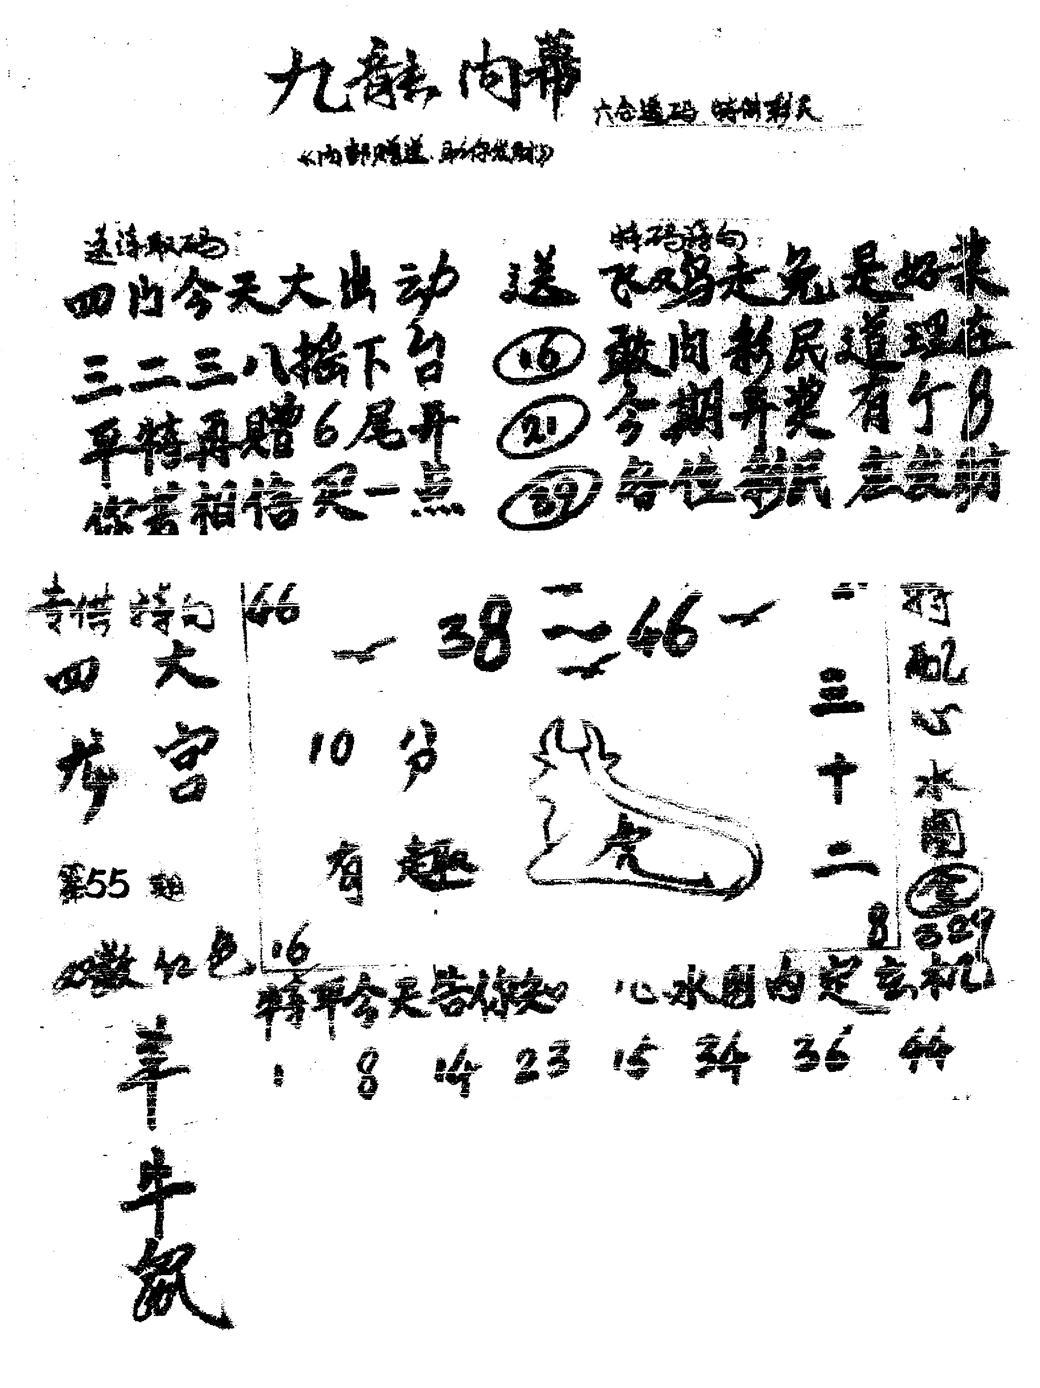 九龍内幕
六合透码 特供彩民
《内部赠送.助你发财》
送诗取码:
四门今天大出动
三二三八摇下台
平特再赠6尾开
你若相信买一点
送
16
21
39
特码诗句:
飞鸟走兔是好
敢问彩民道理在
今期开奖有个8
各位彩民 发财
专供特句
四大
宫
第55期
数红色
羊
牛
鼠
46
38
二
46
10分
有趣
虎
三十二
16
8
特配心水图
329
特平今天告你知 心水图内定玄机
1 8 14 23 15 34 36 44